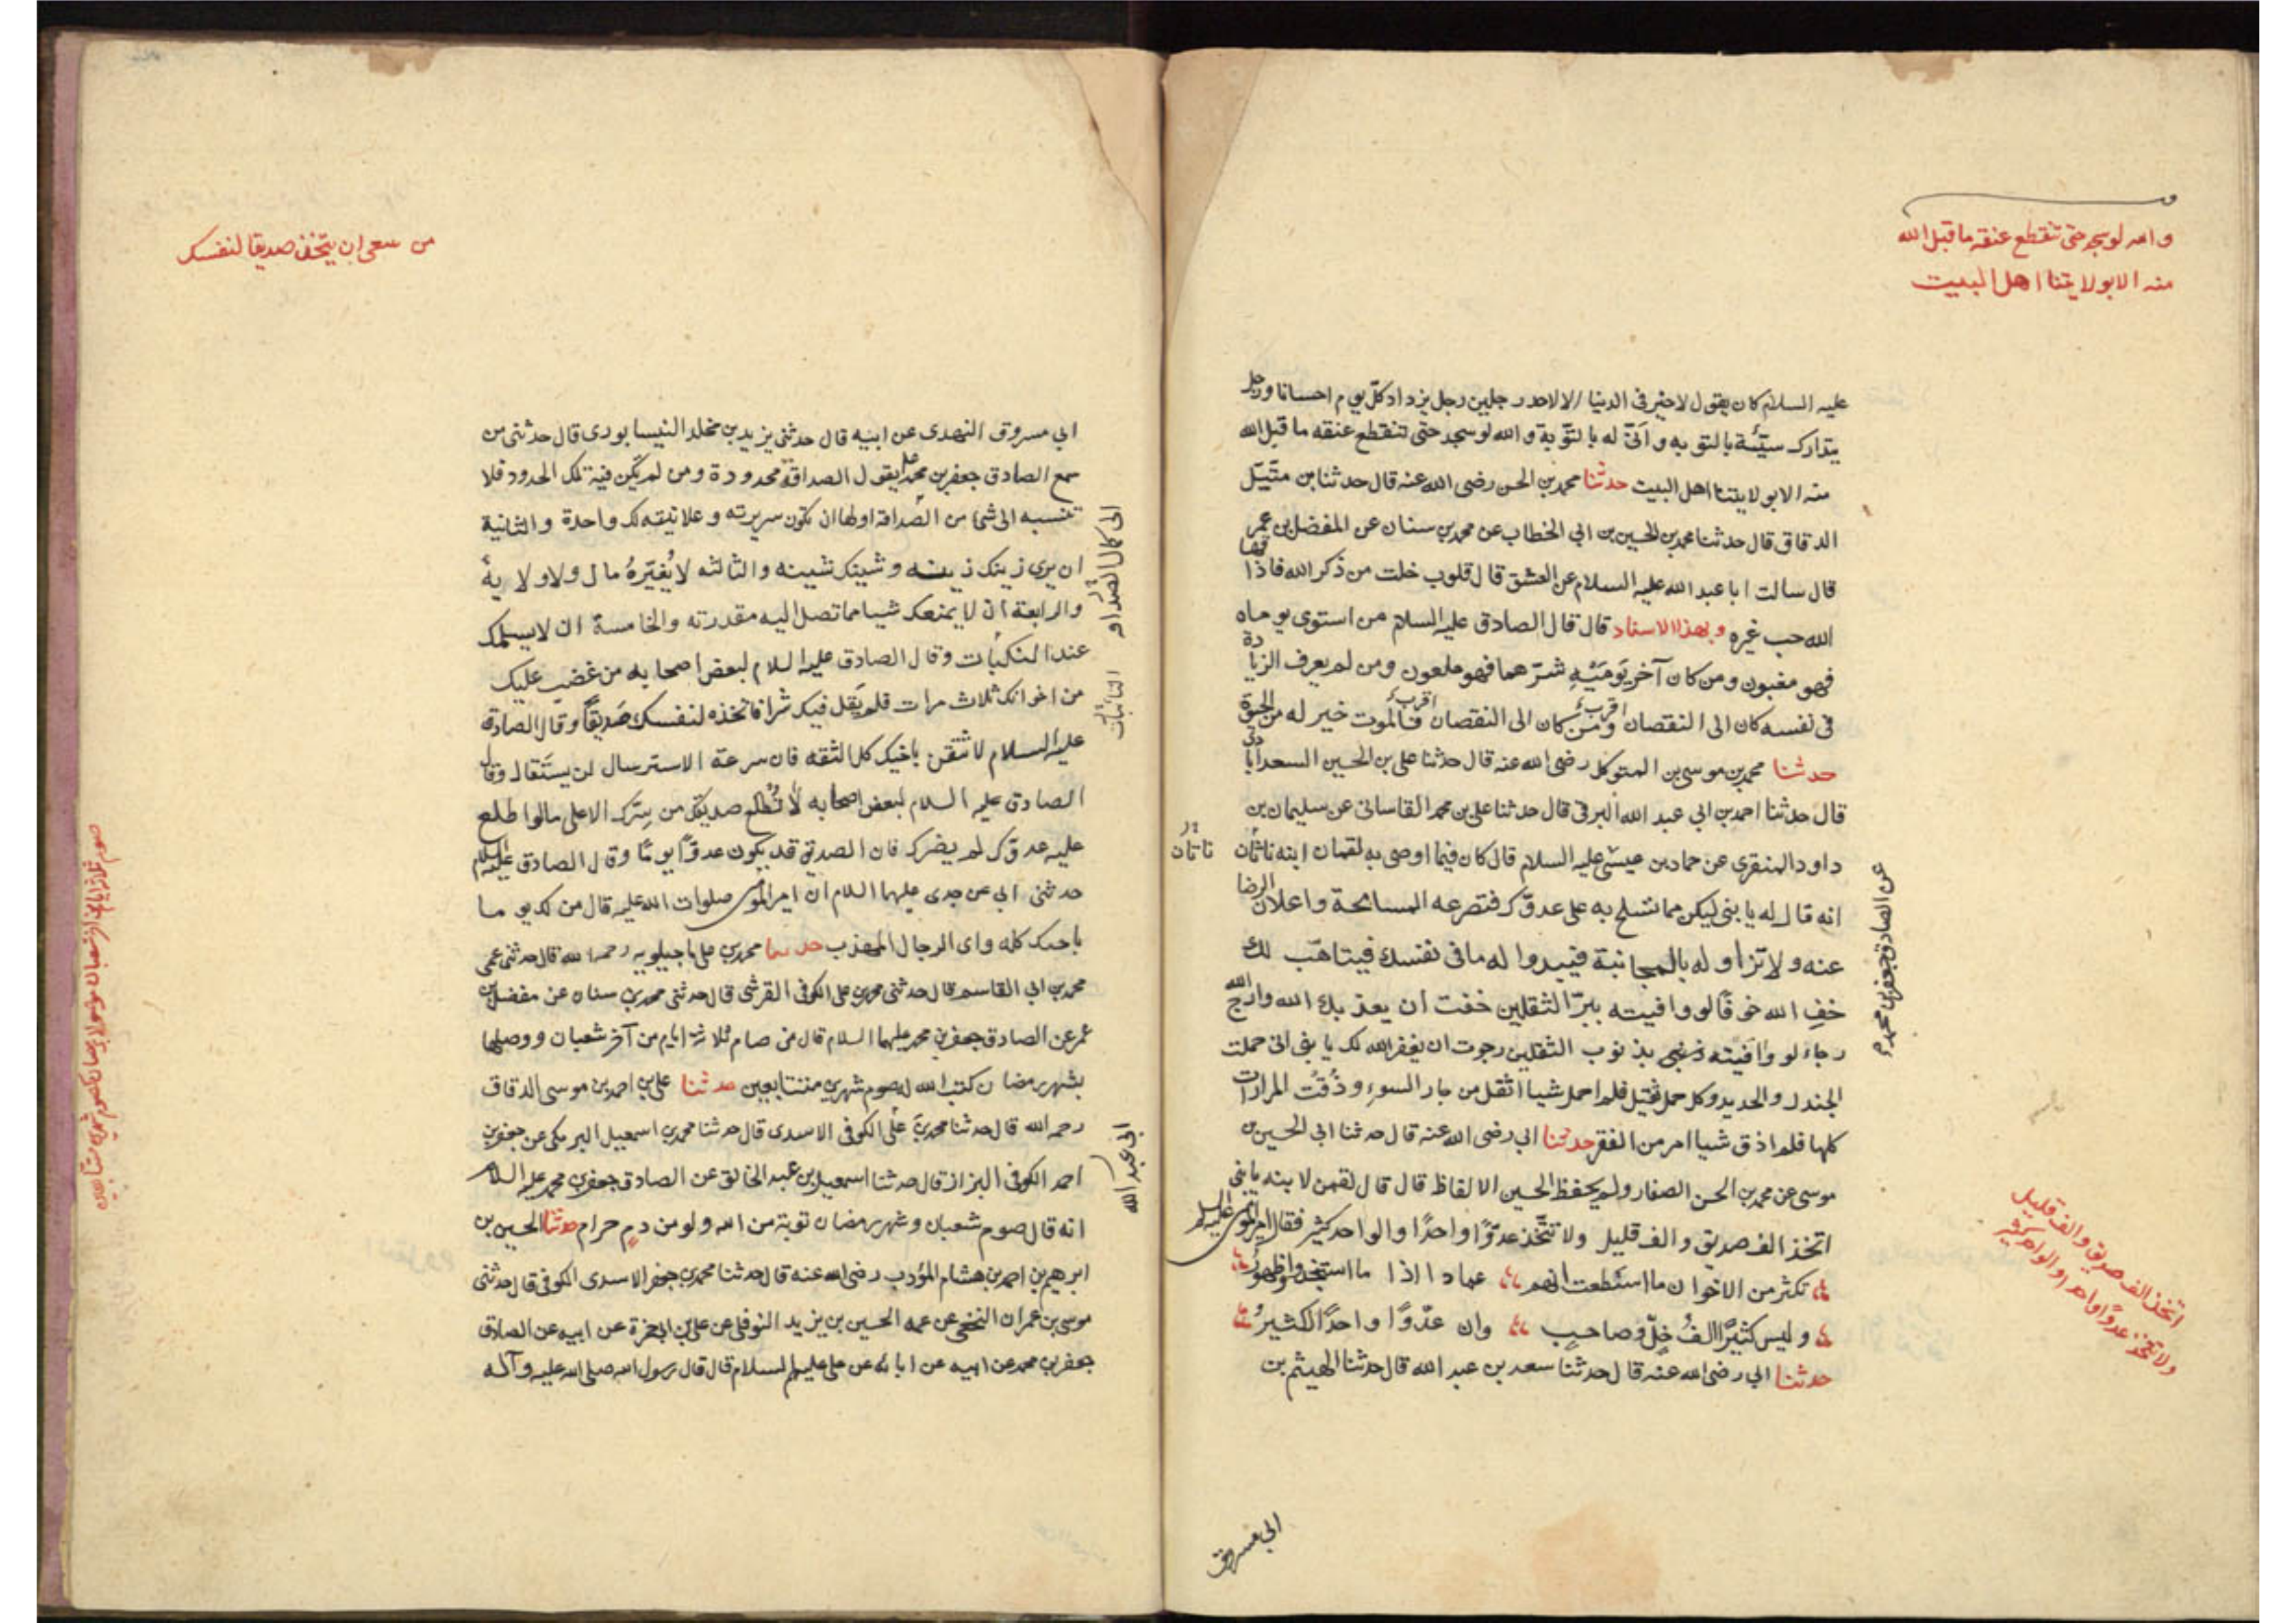 والله لو سجد حتى تنقطع عنقه ما قبل الله
منه الا بولايتنا اهل البيت
عليه السلام كان يقول لا خير في الدنيا الا لاحد رجلين رجل يزداد كل يوم احسانا ورجل
يتدارك سيئة بالتوبه وانى له بالتوبة والله لو سجد حتى تنقطع عنقه ما قبل الله
منه الا بولايتنا اهل البيت حدثنا محمد بن الحسن رضى الله عنه قال حدثنا بن متيل
الدقاق قال حدثنا محمد بن الحسين بن ابي الخطاب عن محمد بن سنان عن المفضل بن عمر
قال سالت ابا عبد الله عليه السلام عن العشق قال قلوب خلت من ذكر الله فاذاقها
الله حب غيره وبهذا الاسناد قال قال الصادق عليه السلام من استوى يوماه
فهو مغبون ومن كان آخر يَومَيْهِ شرّ هما فهو ملعون ومن لم يعرف الزيادة
في نفسه كان الى النقصان اقرب ومن كان الى النقصان اقرب فالموت خير له من الحيوة
حدثنا محمد بن موسى بن المتوكل رضى الله عنه قال حدثنا على بن الحسين السعدابادى
قال حدثنا احمد بن ابي عبد الله البرقي قال حدثنا على بن محمد القاسانى عن سليمان بن
داود المنقرى عن حماد بن عيسى عليه السلام قال كان فيما اوصى به لقمان ابنه ناتان
ناتان
عن الصادق جعفر بن محمد ع
انه قال له يا بنى ليكن مما تتسلح به على عدوّك فتصرعه المسامحة واعلان الرضا
عنه ولا تزاوله بالمجانبة فيبدوا له ما فى نفسك فيتاهّب لك
خفِ الله خوفًا لو وافيته ببرّ الثقلين خفت أن يعذبك الله وارج الله
رجاء لو وافيته بذنوب الثقلين رجوت ان يغفر الله لك يا بنى انى حملت
الجندل والحديد وكل حمل ثقيل فلم احمل شيا اثقل من جار السوء وذُقتُ المرارات
كلها فلم اذق شيا امر من الفقر حدثنا ابي رضى الله عنه قال حدثنا ابي الحسين بن
موسى عن محمد بن الحسن الصفار ولم يحفظ الحسين الالفاظ قال قال لقمن لابنه يا بنى
اتخذ الف صديق والف قليل ولا تتّخذ عدوًّا واحدًا والواحد كثير فقال امير المومنين عليه السلم
تكثر من الاخوان ما اسطعت انهم عماد اذا ما استنجدوا وظهورُ
وليس كثيرًا الفُ خِلٍّ وصاحبٍ وان عدّوًا واحدًا لكثيرُ
حدثنا ابي رضى الله عنه قال حدثنا سعد بن عبد الله قال حدثنا الهيثم بن
اتخذ الف صديق والف قليل
ولا تتخذ عدوًا واحدا والواحد كثير
ابي مسروق
من سعى ان يتخذ صديقا لنفسك
ابي مسروق النهدى عن ابيه قال حدثنى يزيد بن مخلد النيسابورى قال حدثنى من
سمع الصادق جعفر بن محمد ع يقول الصداقة محدودة ومن لم يكن فيه تلك الحدود فلا
تنسبه الى شيا من الصداقة اولها ان تكون سريرته وعلانيته لك واحدة والثانية
الى كمال الصداقة
ان يرى زينك زينه وشينك شينه والثالثه لا يُغيّرهُ مال ولا ولاية
والرابعة ان لا يمنعك شيا مما تصل اليه مقدرته والخامسة ان لا يسلمك
عند النكبات وقال الصادق عليه السلام لبعض اصحابه من غضب عليك
النائبات
من اخوانك ثلاث مرات فلم يَقل فيك شرا فاتخذه لنفسك صَديقًا وقال الصادق
عليه السلام لا تثقن باخيك كل الثقه فان سرعة الاسترسال لن يستقال وقال
الصادق عليه السلام لبعض اصحابه لا تُطلع صديقك من سِرّك الا على ما لو اطلع
عليه عدوّك لم يضرك فان الصديق قد يكون عدوًّا يومًا وقال الصادق عليه السلام
حدثنى ابي عن جدى عليهما السلام ان امير المومنين صلوات الله عليه قال من لك يوما
باخيك كله واى الرجال المهذب حدثنا محمد بن على ماجيلويه رحمه الله قال حدثنى عمى
محمد بن ابي القاسم قال حدثنى محمد بن على الكوفى القرشى قال حدثنى محمد بن سنان عن مفضل بن
عمر عن الصادق جعفر بن محمد عليهما السلام قال من صام ثلاثه ايام من آخر شعبان ووصلها
بشهر رمضان كتب الله له صوم شهرين متتابعين حدثنا على بن احمد بن موسى الدقاق
رحمه الله قال حدثنا محمد بن على الكوفى الاسدى قال حدثنا محمد بن اسمعيل البرمكى عن جعفر بن
ابي عبد الله
احمد الكوفى البزاز قال حدثنا اسمعيل بن عبد الخالق عن الصادق جعفر بن محمد عليه السلام
انه قال صوم شعبان وشهر رمضان توبة من الله ولو من دمٍ حرام حدثنا الحسين بن
ابرهيم بن احمد بن هشام المؤدب رضى الله عنه قال حدثنا محمد بن جعفر الاسدى الكوفى قال حدثنى
موسى بن عمران النخعى عن عمه الحسين بن يزيد النوفلى عن على بن ابي حمزة عن ابيه عن الصادق
جعفر بن محمد عن ابيه عن ابائه عن على عليهم السلام قال قال رسول الله صلى الله عليه وآله
صوم ثلاثه ايام اخر شعبان موصولا برمضان كصوم شهرين متتابعين